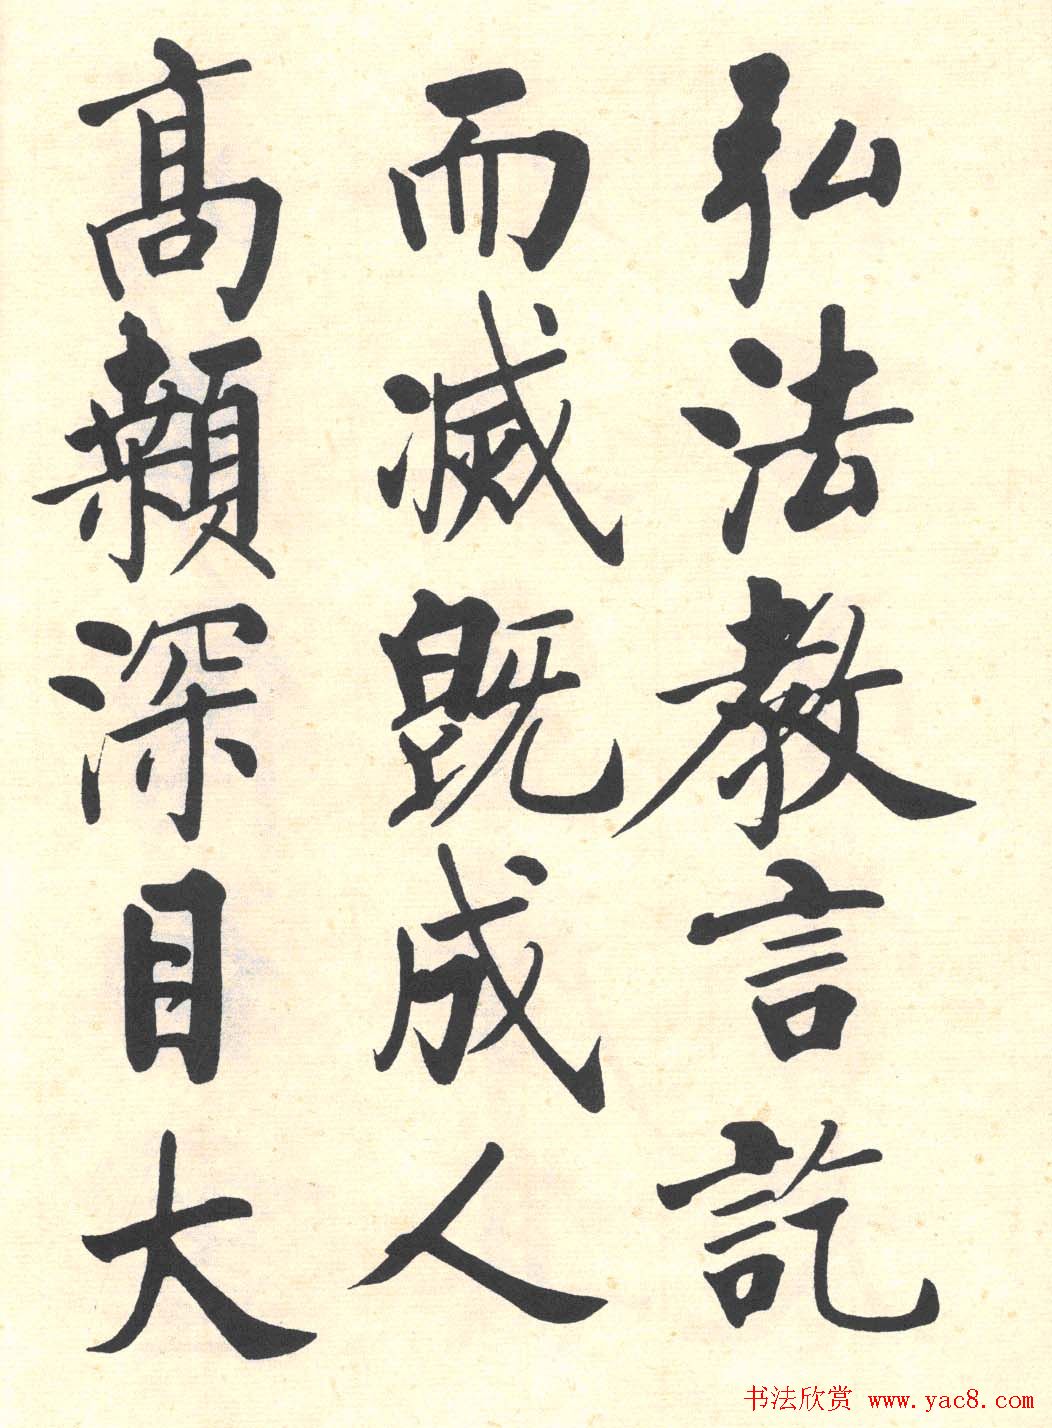 弘法教言訖
而滅既成人
高顙深目大
书法欣赏 www.yac8.com